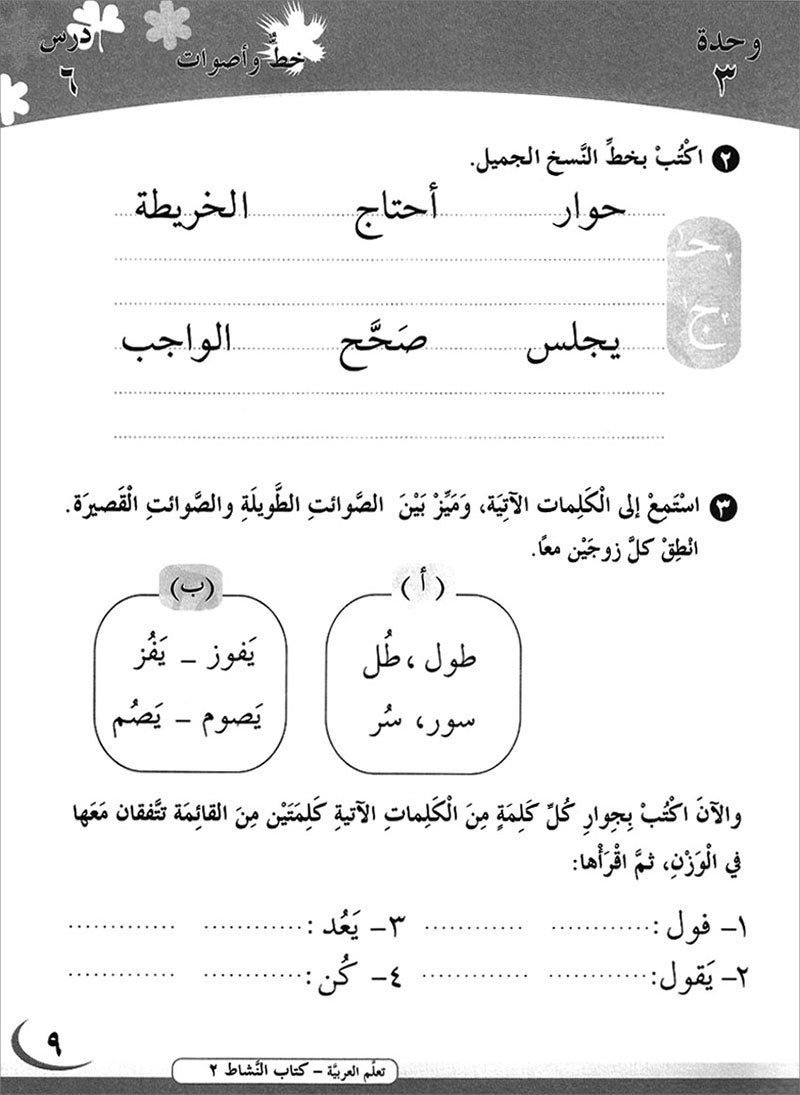 وحدة
٣
خطٌّ وأصوات
درس
٦
٢ اكْتُبْ بخطِّ النَّسخ الجميل.
حوار أحتاج الخريطة
حـ
ج
يجلس صَحَّح الواجب
٣ اسْتَمِعْ إلى الْكَلِمات الآتِيَة، وَمَيِّزْ بَيْنَ الصَّوائتِ الطَّويلَةِ والصَّوائتِ الْقَصيرَة.
انْطِقْ كلَّ زوجَيْن معًا.
(أ)
طول ، طُل
سور، سُر
(ب)
يَفوز – يَفُز
يَصوم – يَصُم
والآنَ اكْتُبْ بِجِوارِ كُلِّ كَلِمَةٍ مِنَ الْكَلِماتِ الآتيةِ كَلِمَتَيْن مِنَ القائِمَة تتَّفقان مَعَها
في الْوَزْنِ، ثمَّ اقْرَأْها:
١– فول : ............ ............ ٣– يَعُد : ............ ............
٢– يَقول: ............ ............ ٤– كُن : ............ ............
٩
تعلَّم العربيَّة – كتاب النَّشاط ٢